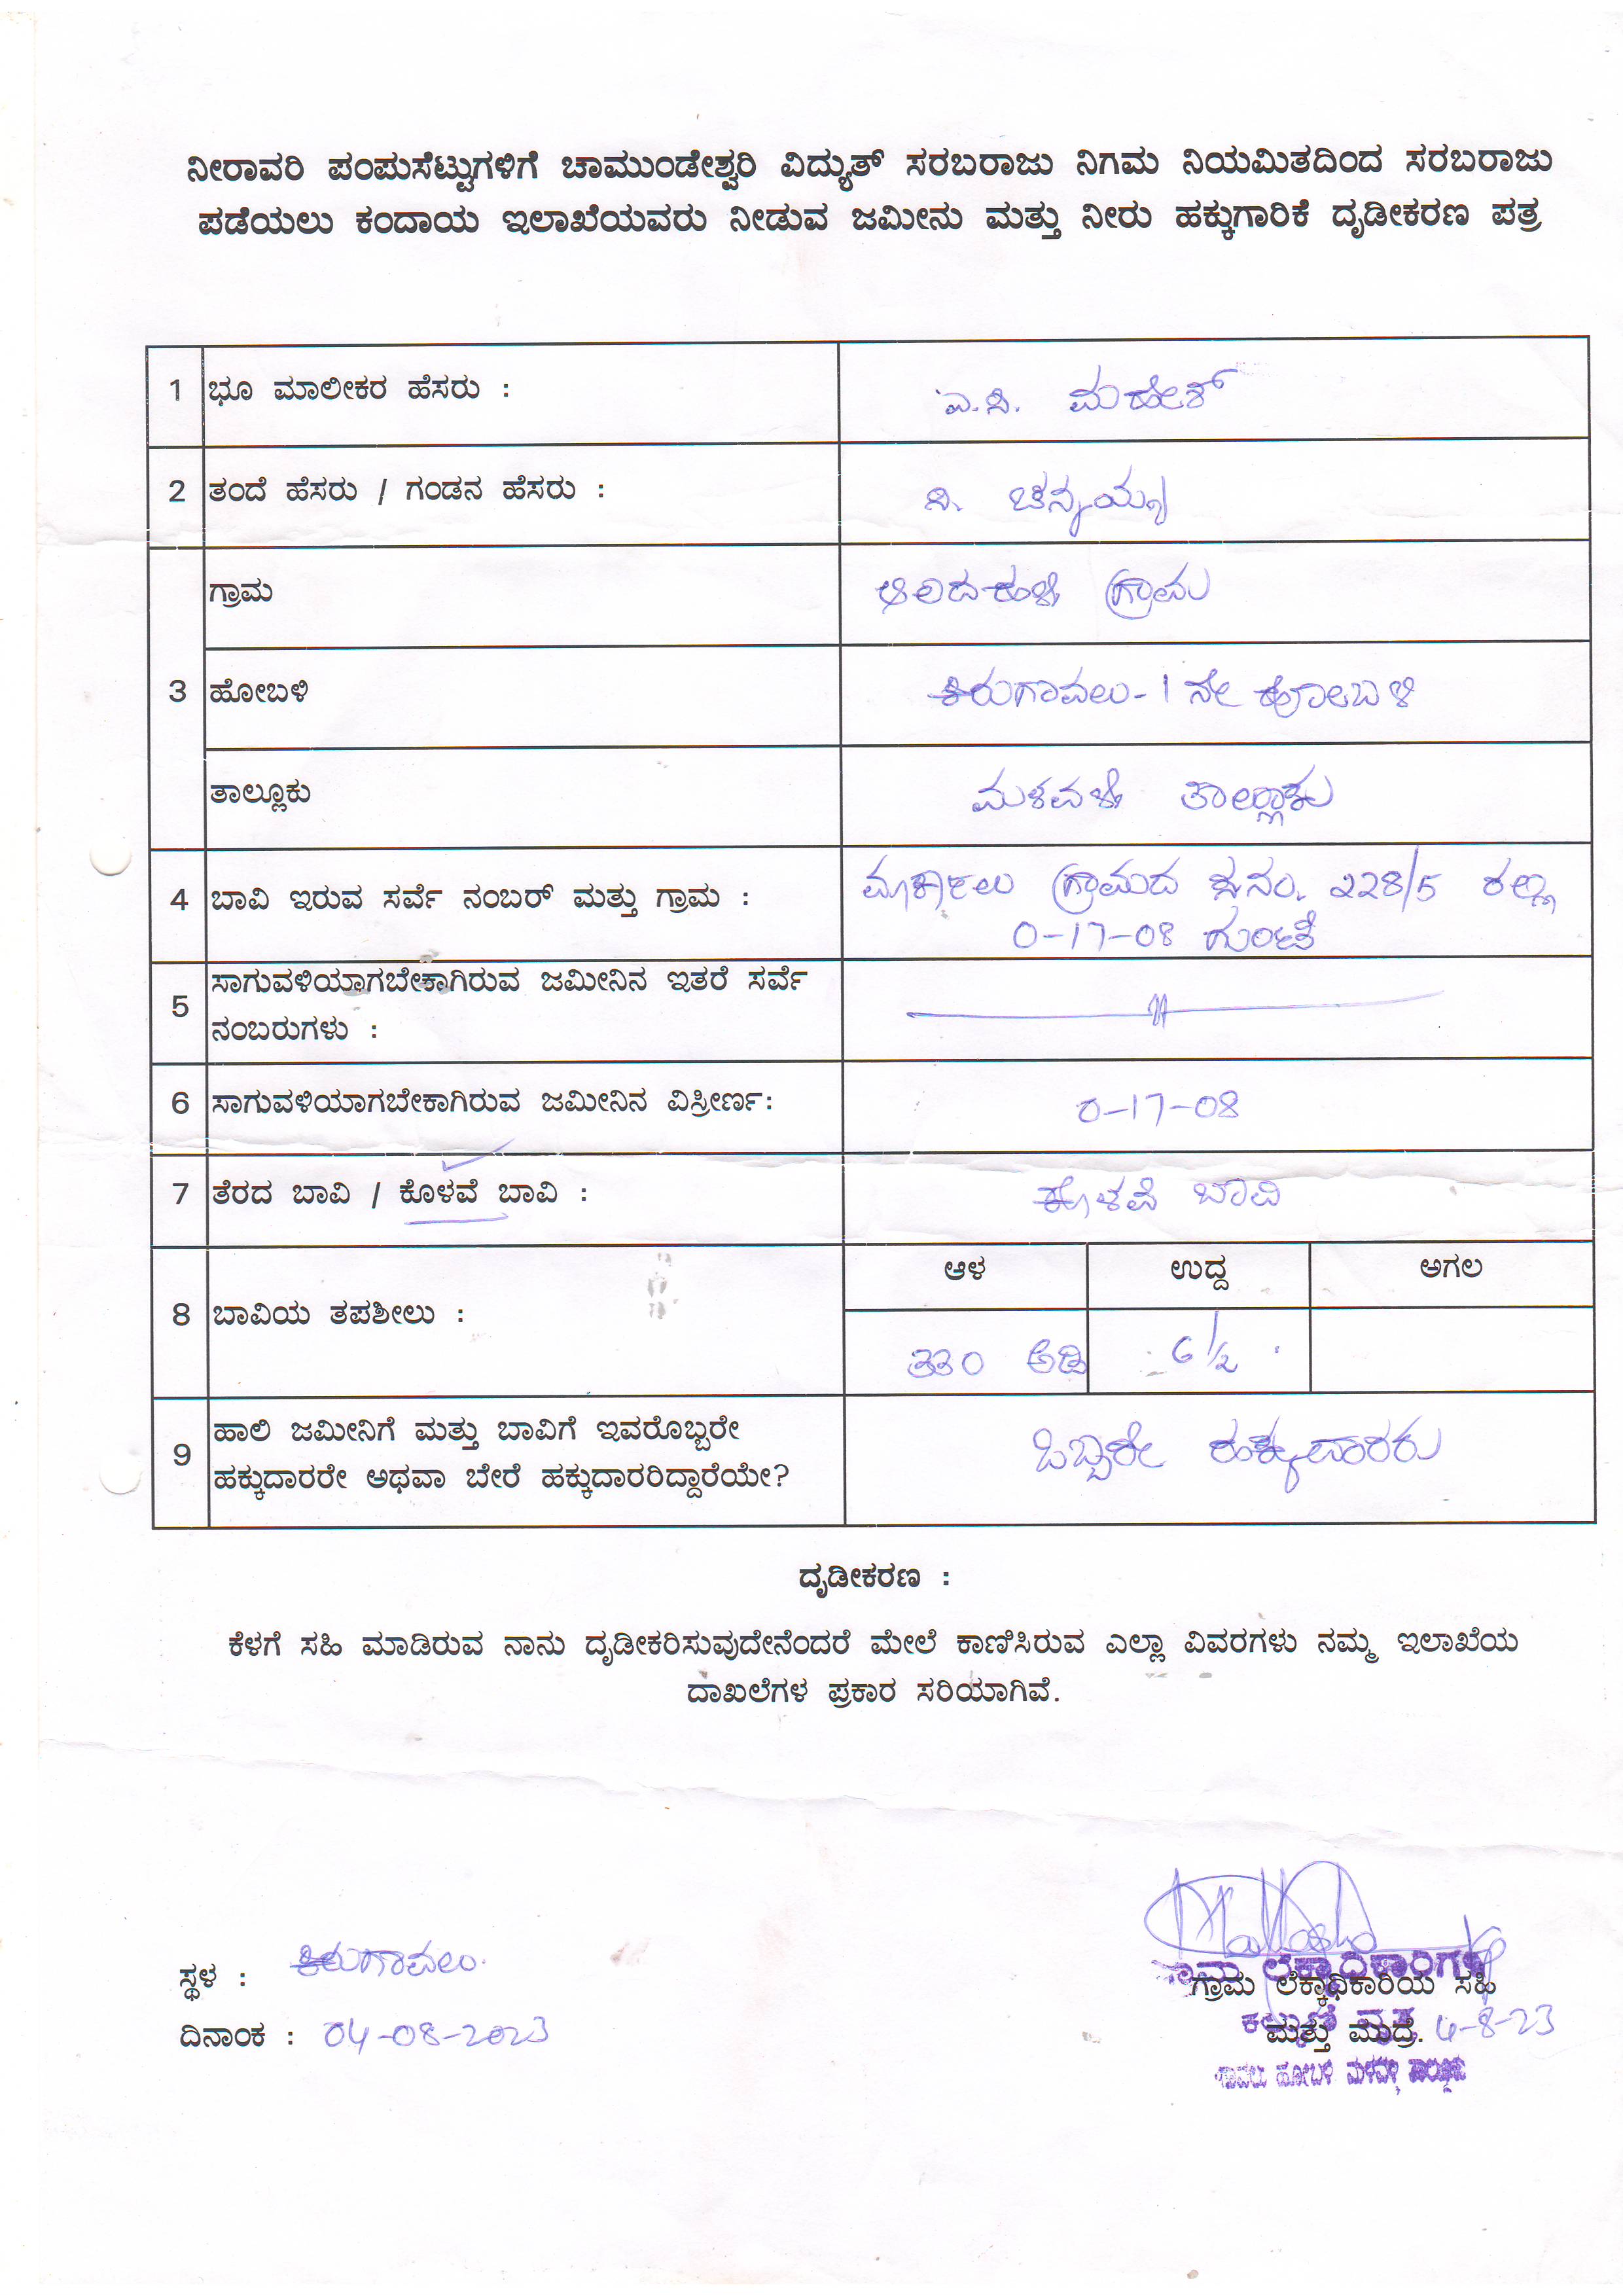 ನೀರಾವರಿ ಪಂಪುಸೆಟ್ಟುಗಳಿಗೆ ಚಾಮುಂಡೇಶ್ವರಿ ವಿದ್ಯುತ್ ಸರಬರಾಜು ನಿಗಮ ನಿಯಮಿತದಿಂದ ಸರಬರಾಜು
ಪಡೆಯಲು ಕಂದಾಯ ಇಲಾಖೆಯವರು ನೀಡುವ ಜಮೀನು ಮತ್ತು ನೀರು ಹಕ್ಕುಗಾರಿಕೆ ದೃಡೀಕರಣ ಪತ್ರ
1 ಭೂ ಮಾಲೀಕರ ಹೆಸರು : ಎ.ಸಿ. ಮಹೇಶ್
2 ತಂದೆ ಹೆಸರು / ಗಂಡನ ಹೆಸರು : ಸಿ. ಚನ್ನಯ್ಯ
ಗ್ರಾಮ ಗ್ರಾಮ
3 ಹೋಬಳಿ ಕಿರುಗಾವಲು-1 ನೇ ಹೋಬಳಿ
ತಾಲ್ಲೂಕು ಮಳವಳ್ಳಿ ತಾಲ್ಲೂಕು
4 ಬಾವಿ ಇರುವ ಸರ್ವೆ ನಂಬರ್ ಮತ್ತು ಗ್ರಾಮ : ಗ್ರಾಮದ ಸ.ನಂ. 228/5 ರಲ್ಲಿ
0-17-08 ಗುಂಟೆ
5 ಸಾಗುವಳಿಯಾಗಬೇಕಾಗಿರುವ ಜಮೀನಿನ ಇತರೆ ಸರ್ವೆ
ನಂಬರುಗಳು :
6 ಸಾಗುವಳಿಯಾಗಬೇಕಾಗಿರುವ ಜಮೀನಿನ ವಿಸ್ತೀರ್ಣ: 0-17-08
7 ತೆರದ ಬಾವಿ / ಕೊಳವೆ ಬಾವಿ : ಕೊಳವೆ ಬಾವಿ
ಆಳ ಉದ್ದ ಅಗಲ
8 ಬಾವಿಯ ತಪಶೀಲು :
330 ಅಡಿ 6 1/2
9 ಹಾಲಿ ಜಮೀನಿಗೆ ಮತ್ತು ಬಾವಿಗೆ ಇವರೊಬ್ಬರೇ
ಹಕ್ಕುದಾರರೇ ಅಥವಾ ಬೇರೆ ಹಕ್ಕುದಾರರಿದ್ದಾರೆಯೇ? ಒಬ್ಬರೇ ಹಕ್ಕುದಾರರು
ದೃಡೀಕರಣ :
ಕೆಳಗೆ ಸಹಿ ಮಾಡಿರುವ ನಾನು ದೃಡೀಕರಿಸುವುದೇನೆಂದರೆ ಮೇಲೆ ಕಾಣಿಸಿರುವ ಎಲ್ಲಾ ವಿವರಗಳು ನಮ್ಮ ಇಲಾಖೆಯ
ದಾಖಲೆಗಳ ಪ್ರಕಾರ ಸರಿಯಾಗಿವೆ.
ಸ್ಥಳ : ಕಿರುಗಾವಲು
ಗ್ರಾಮ ಲೆಕ್ಕಾಧಿಕಾರಿಗಳು
ಗ್ರಾಮ ಲೆಕ್ಕಾಧಿಕಾರಿಯ ಸಹಿ
ದಿನಾಂಕ : 04-08-2023
ವೃತ್ತ
ಮತ್ತು ಮುದ್ರೆ. 4-8-23
ಹೋಬಳಿ ಮಳವಳ್ಳಿ ತಾಲ್ಲೂಕು